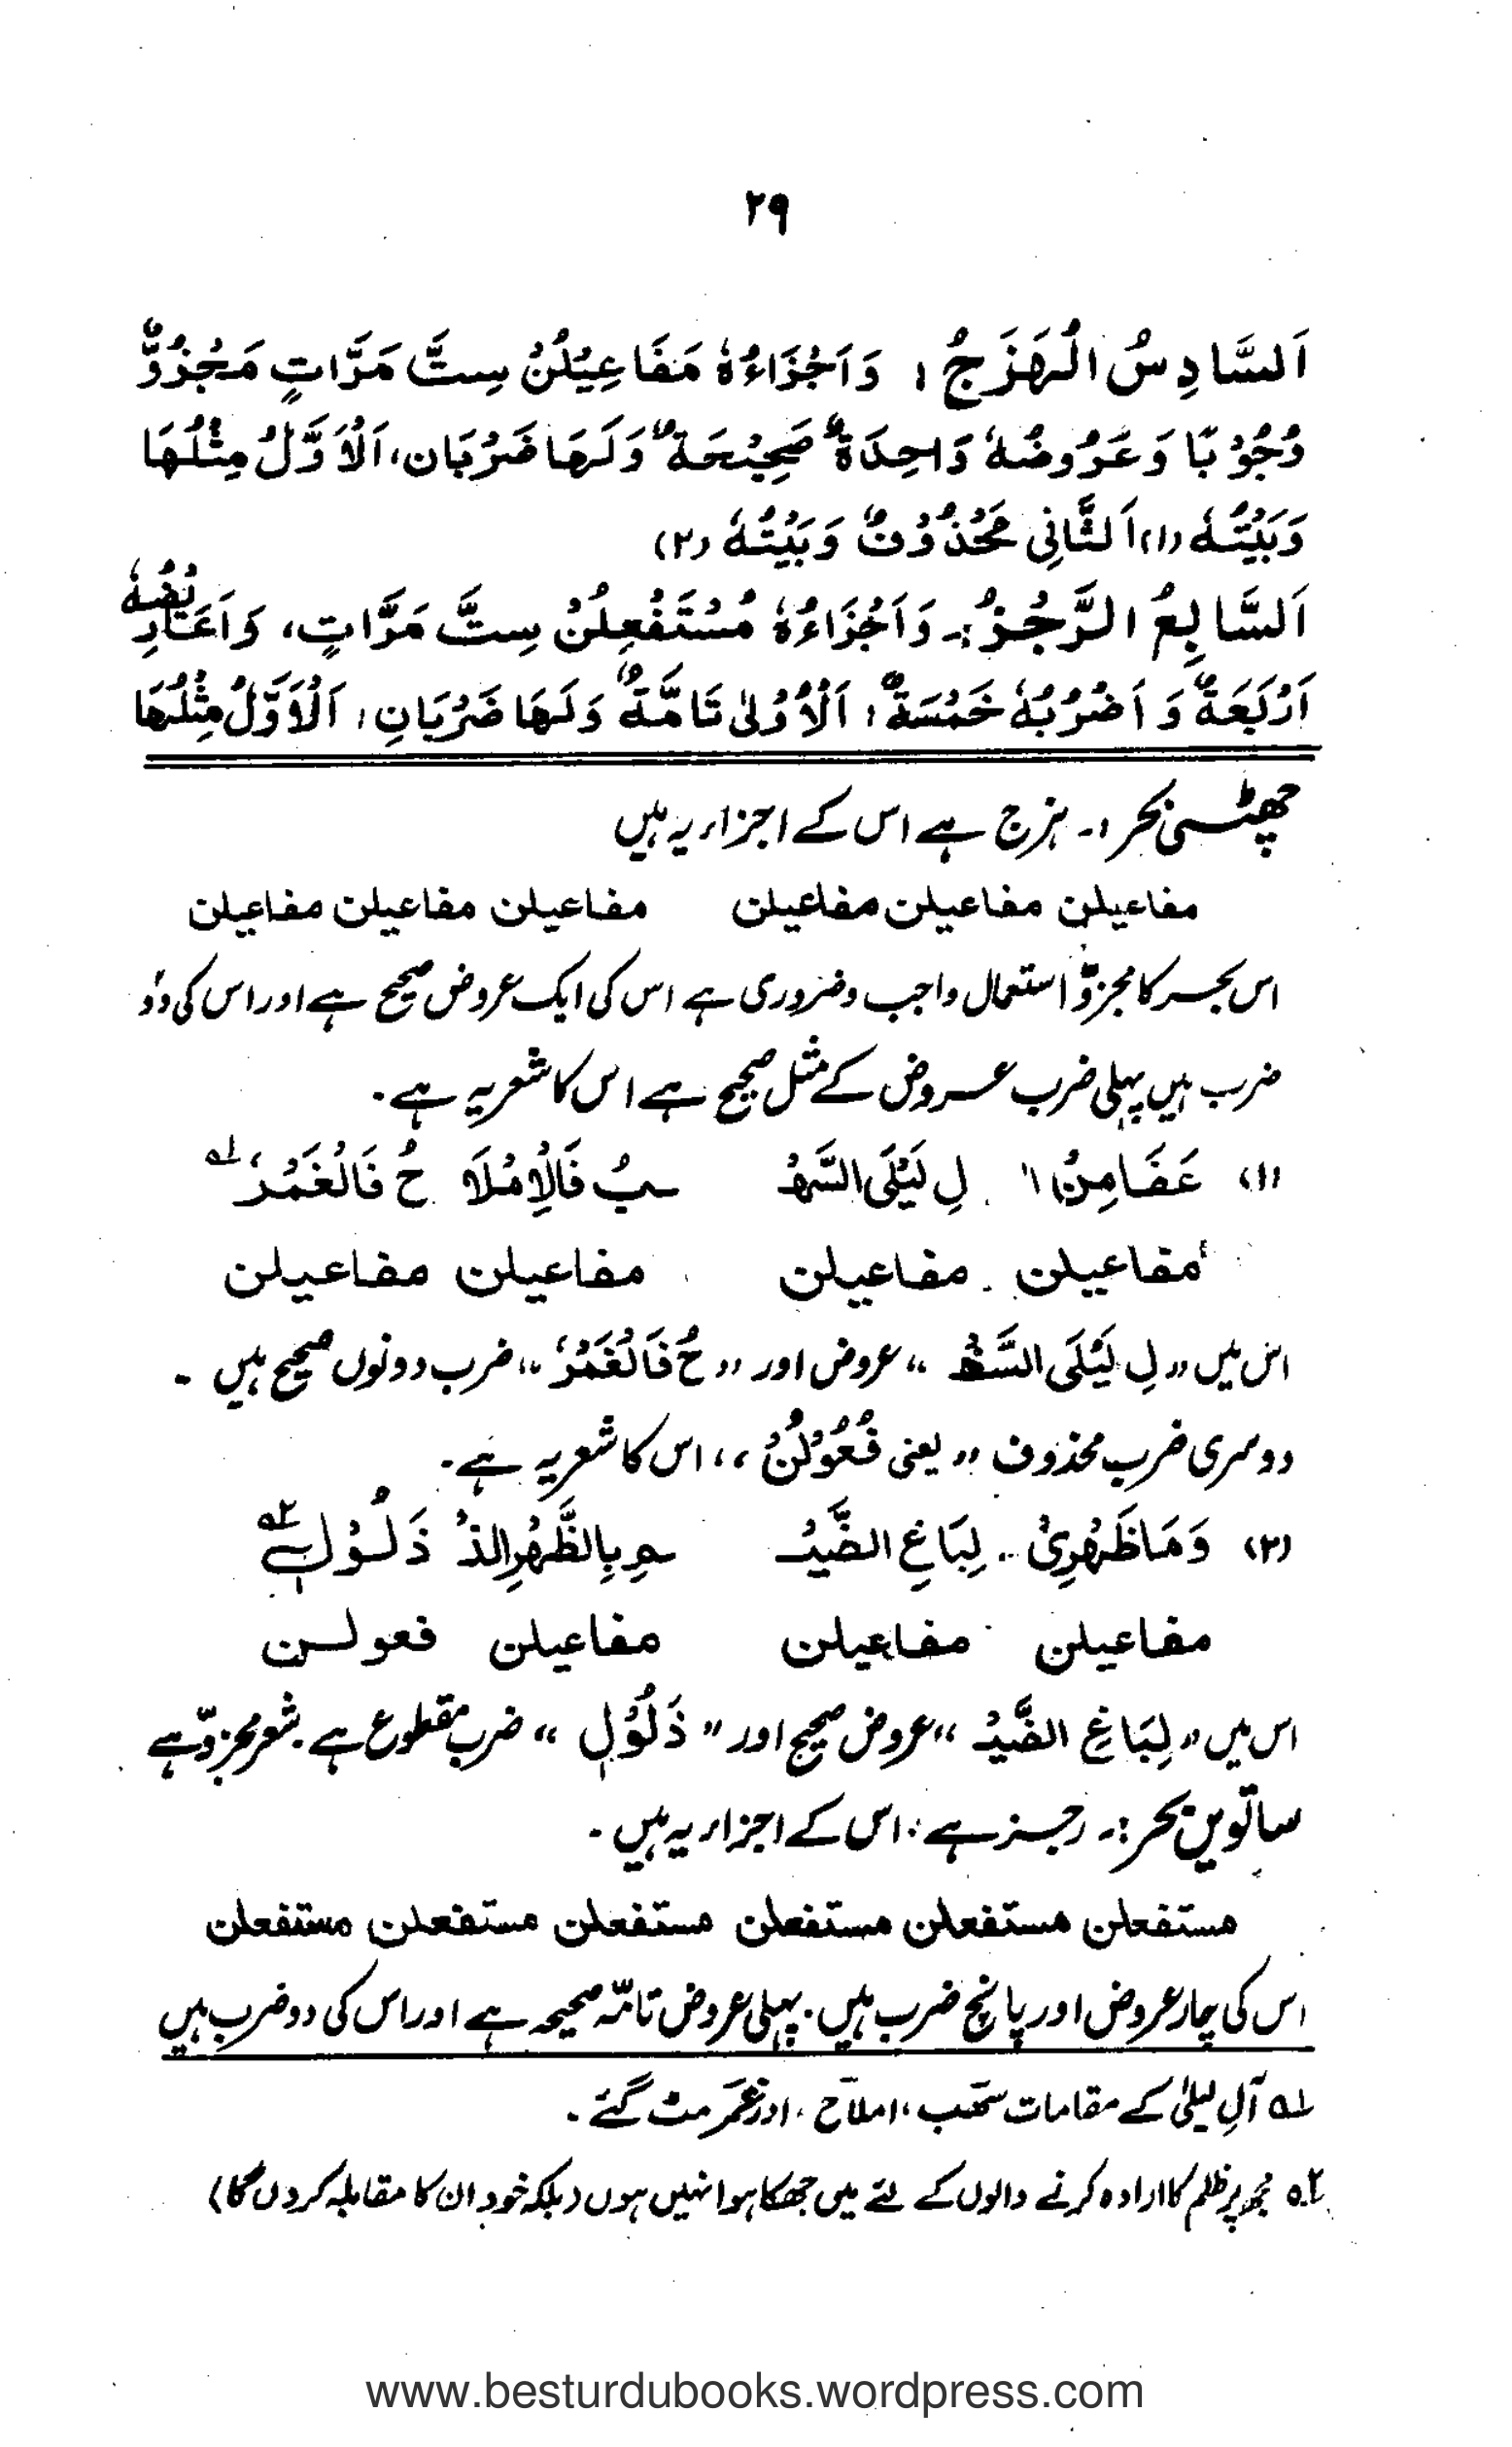 ۲۹
اَلسَّادِسُ الْهَزَجُ : وَاَجْزَاءُهٗ مَفَاعِيْلُنْ سِتَّ مَرَّاتٍ مَجْزُوٌّ
وُجُوْبًا وَعَرُوضُهٗ وَاحِدَةٌ صَحِيْحَةٌ وَلَهَا ضَرْبَان، اَلْاَوَّلُ مِثْلُهَا
وَبَيْتُهٗ (۱) اَلثَّانِی مَحْذُوْفٌ وَبَيْتُهٗ (۲)
اَلسَّابِعُ الرَّجُزُ :۔ وَاَجْزَاءُهٗ مُسْتَفْعِلُنْ سِتَّ مَرَّاتٍ، وَاَعَارِيْضُهٗ
اَرْبَعَةٌ وَ اَضْرُبُهٗ خَمْسَةٌ ؛ اَلْاُوْلٰى تَامَّةٌ وَلَهَا ضَرْبَانِ ، اَلْاَوَّلُ مِثْلُهَا
چھٹی بحر :۔ ہزج ہے اس کے اجزاء یہ ہیں
مفاعیلن مفاعیلن مفاعیلن مفاعیلن مفاعیلن مفاعیلن
اس بحر کا مجزوّ استعمال واجب وضروری ہے اس کی ایک عروض صحیح ہے اور اس کی دو
ضرب ہیں پہلی ضرب عروض کے مثل صحیح ہے اس کا شعر یہ ہے ۔
(۱) عَفَا مِنْ ا لِ لَيْلَی السَّهْ بُ فَالْاِمْلَا حُ فَالْغَمْرُ ۱؎
مفاعیلن مفاعیلن مفاعیلن مفاعیلن
اس میں ،، لِ لَيْلَی السَّهْ ،، عروض اور ،، حُ فَالْغَمْرُ ،، ضرب دونوں صحیح ہیں ۔
دوسری ضرب محذوف ،، یعنی فَعُوْلُنْ ،، اس کا شعر یہ ہے ۔
(۲) وَمَا ظَهْرِیْ لِبَاغِ الضَّيْـ ـمِ بِالظَّهْرِ الذْ ذَلُوْلِیْ ۲؎
مفاعیلن مفاعیلن مفاعیلن فعولن
اس میں ،، لِبَاغِ الضَّيْـ ،، عروض صحیح اور ،، ذَلُوْلِ ،، ضرب مقطوع ہے ۔ شعر مجزوّ ہے
ساتویں بحر :۔ رجز ہے : اس کے اجزاء یہ ہیں ۔
مستفعلن مستفعلن مستفعلن مستفعلن مستفعلن مستفعلن
اس کی چار عروض اور پانچ ضرب ہیں ۔ پہلی عروض تامّہ صحیحہ ہے اور اس کی دو ضرب ہیں
۱؎ آلِ لیلیٰ کے مقامات سَہب ، املاح ، اور غَمَر مٹ گئے ۔
۲؎ مجھ پر ظلم کا ارادہ کرنے والوں کے لئے میں جھکا ہوا نہیں ہوں (بلکہ خود ان کا مقابلہ کروں گا)
www.besturdubooks.wordpress.com